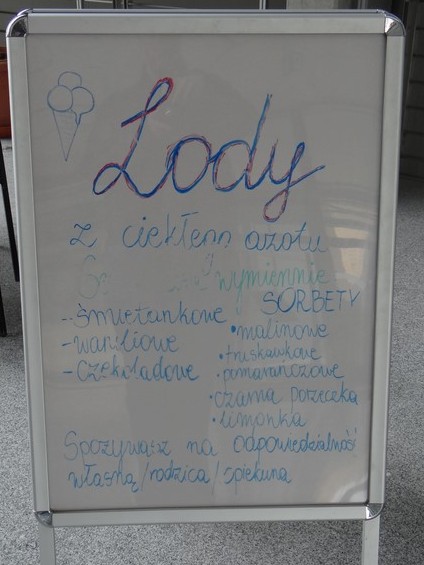 Lody
z ciekłego azotu
wymiennie
SORBETY
- śmietankowe
- waniliowe
- czekoladowe
• malinowe
• truskawkowe
• pomarańczowe
• czarna porzeczka
• limonka
Spożywasz na odpowiedzialność
własną/rodzica/opiekuna